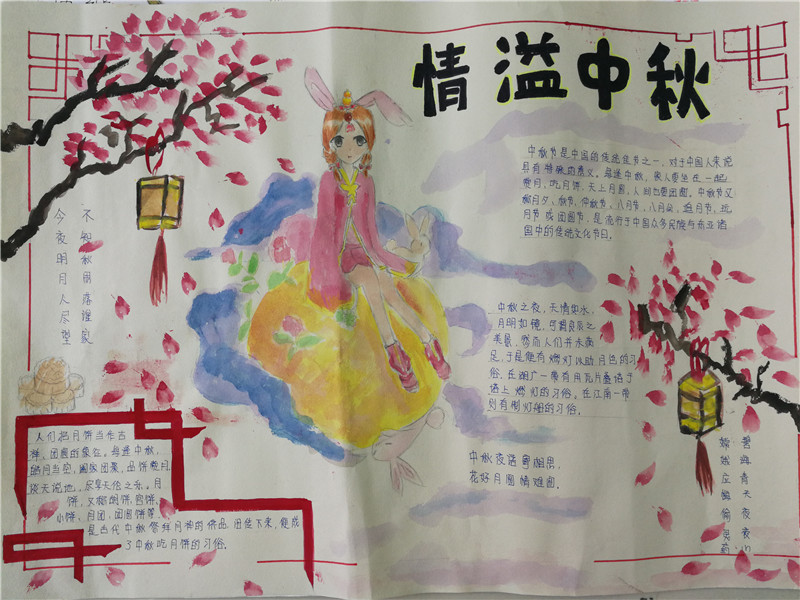 情溢中秋
中秋节是中国的传统佳节之一,对于中国人来说
具有特殊的意义。每逢中秋,家人要坐在一起
赏月,吃月饼,天上月圆,人间也要团圆。中秋节又
称月夕、秋节、仲秋节、八月节、八月会、追月节、玩
月节或团圆节,是流行于中国众多民族与东亚诸
国中的传统文化节日。
今夜明月人尽望
不知秋思落谁家
中秋之夜,天清如水,
月明如镜,可谓良辰之
美景,然而人们并未满
足,于是便有燃灯以助月色的习
俗。在湖广一带有用瓦片叠塔于
塔上燃灯的习俗。在江南一带
则有制灯船的习俗。
中秋夜话寄相思,
花好月圆情难圆。
人们把月饼当作吉
祥、团圆的象征。每逢中秋,
皓月当空,阖家团聚,品饼赏月,
谈天说地,尽享天伦之乐。月
饼,又称胡饼、宫饼、
小饼、月团、团圆饼等,
是古代中秋祭拜月神的供品,沿传下来,便成
了中秋吃月饼的习俗。
嫦娥应悔偷灵药
碧海青天夜夜心